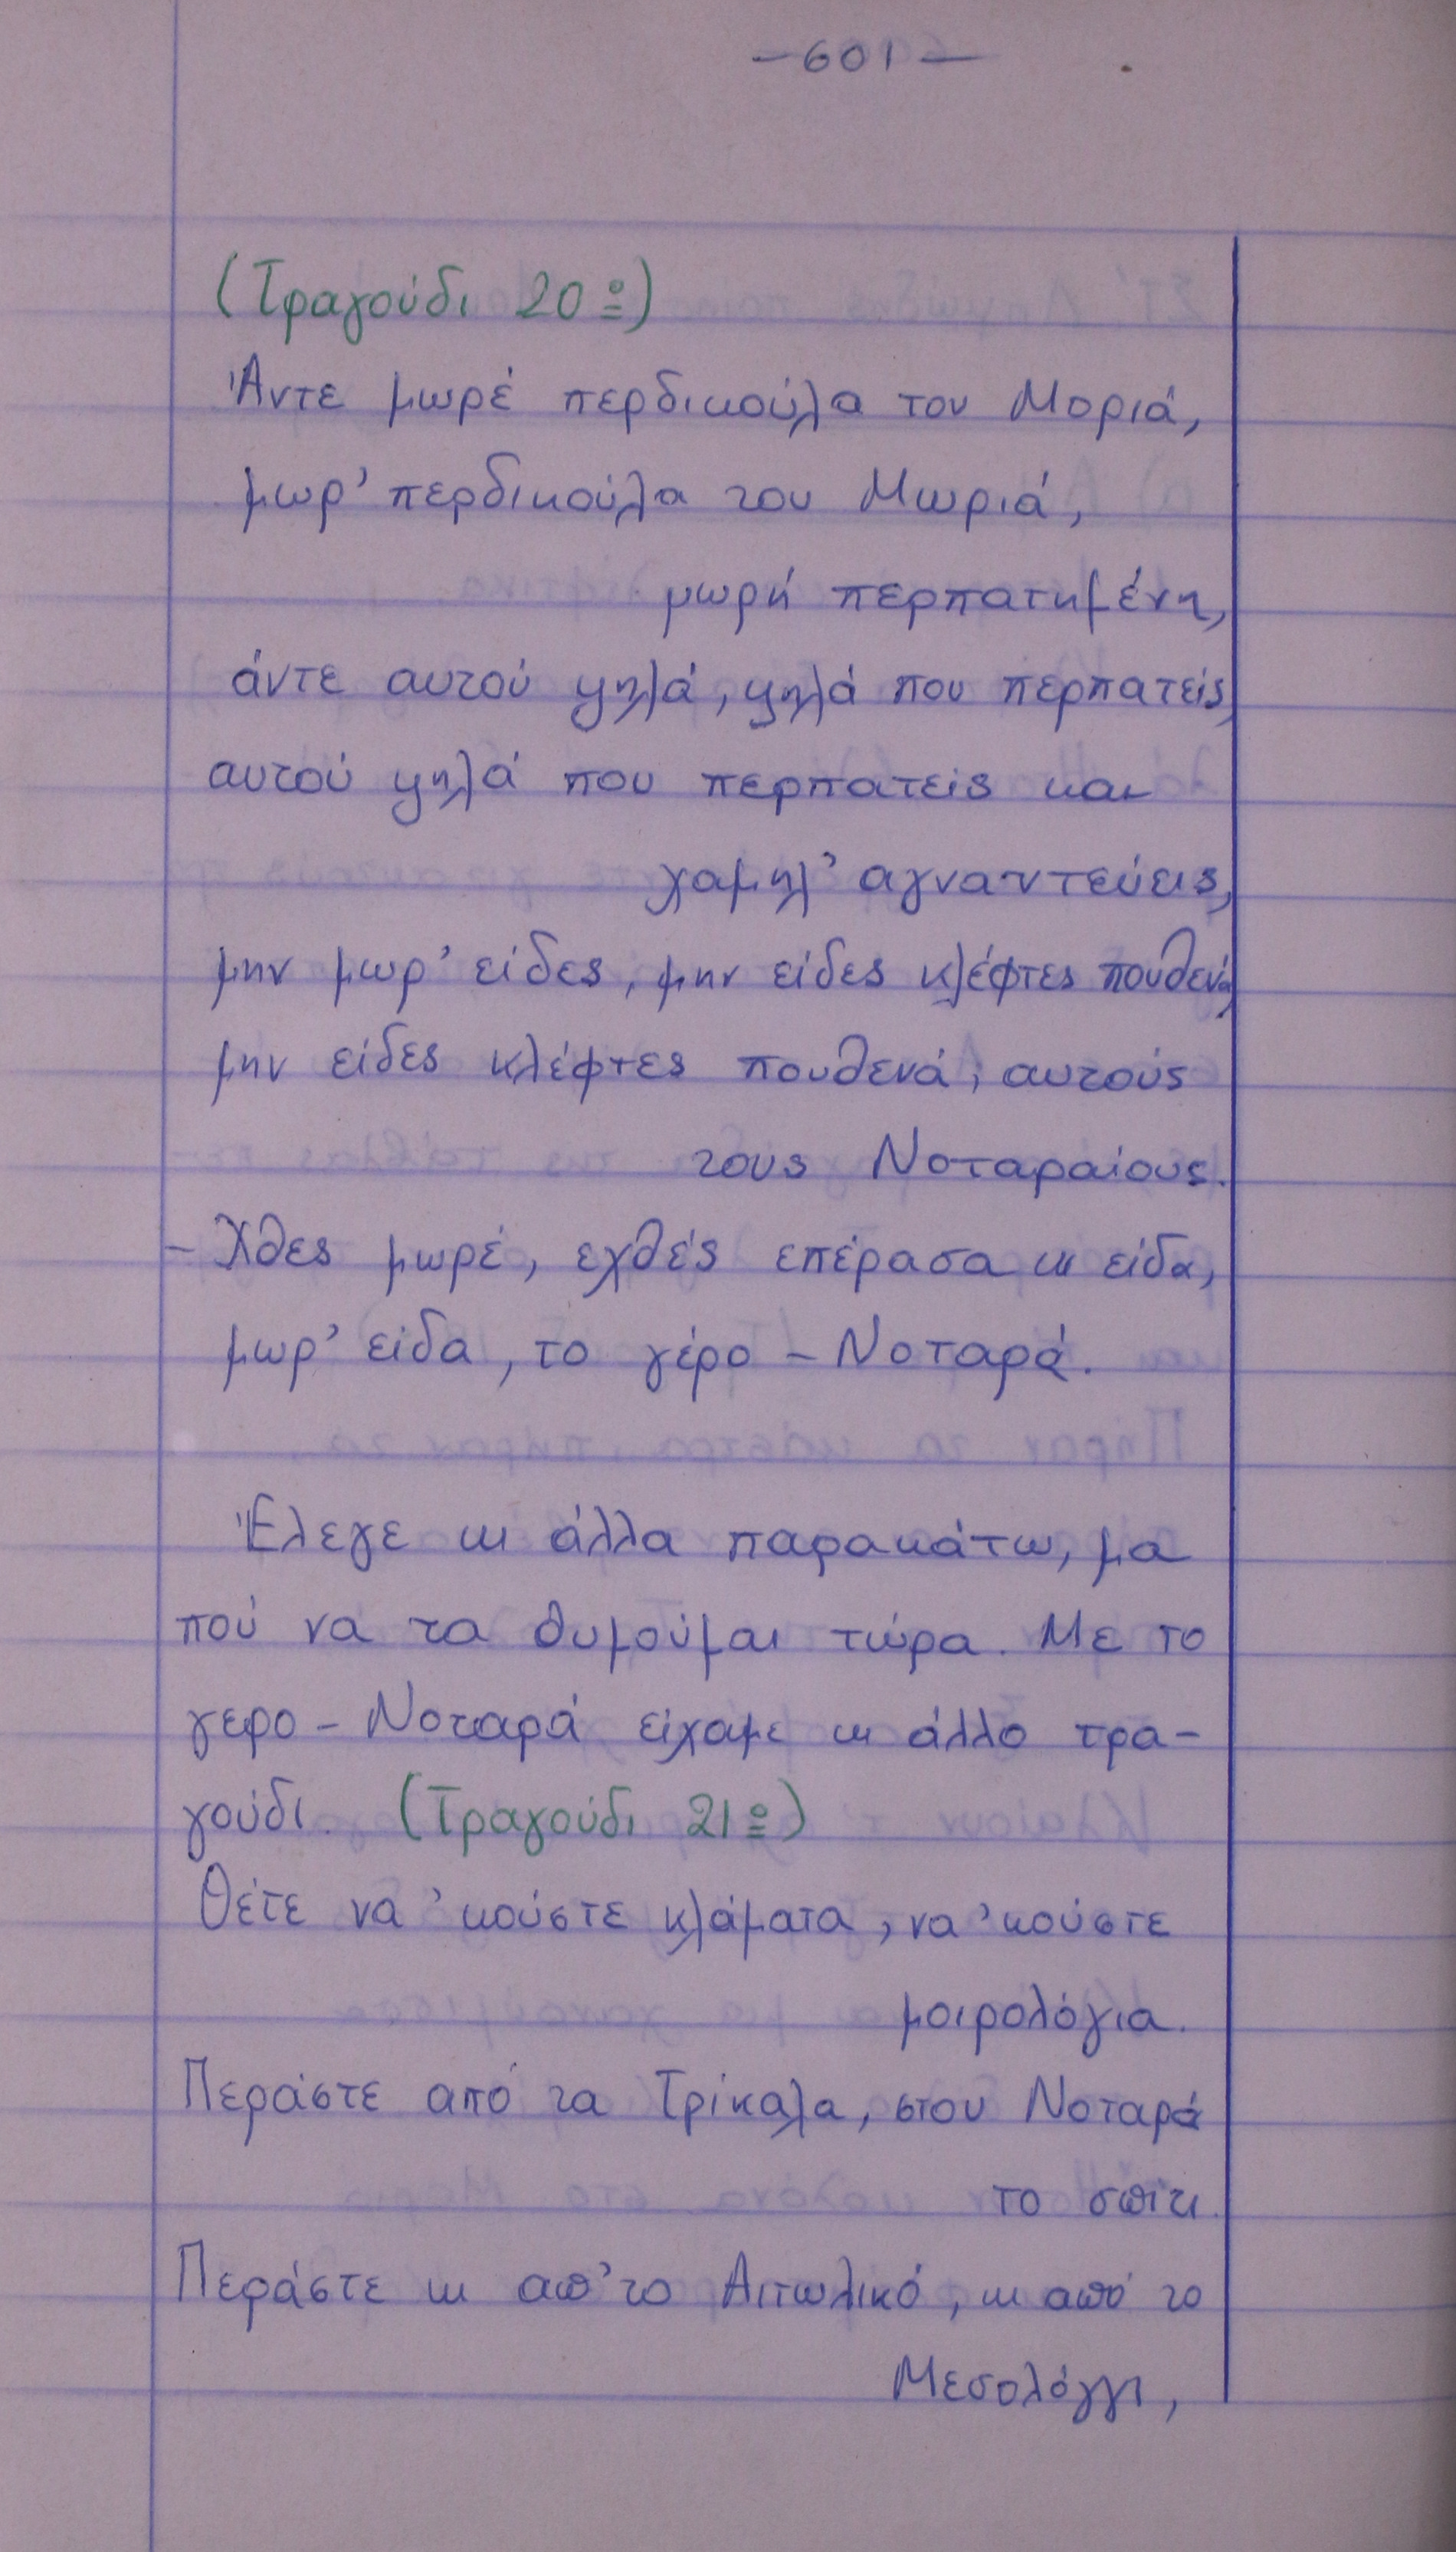 —601—
(Τραγούδι 20º)
Άντε μωρέ περδικούλα του Μοριά,
μωρ' περδικούλα του Μωριά,
μωρή περπατημένη,
άντε αυτού ψηλά, ψηλά που περπατείς,
αυτού ψηλά που περπατείς και
χαμηλ' αγναντεύεις,
μην μωρ' είδες, μην είδες κλέφτες πουθενά,
μην είδες κλέφτες πουθενά, αυτούς
τους Νοταραίους.
- Χθες μωρέ, εχθές επέρασα κι είδα,
μωρ' είδα, το γέρο - Νοταρά.
Έλεγε κι άλλα παρακάτω, μα
πού να τα θυμούμαι τώρα. Με το
γερο - Νοταρά είχαμε κι άλλο τρα-
γούδι. (Τραγούδι 21º)
Θέτε να 'κούστε κλάματα, να 'κούστε
μοιρολόγια.
Περάστε από τα Τρίκαλα, στου Νοταρά
το σπίτι.
Περάστε κι απ' το Αιτωλικό, κι από το
Μεσολόγγι,